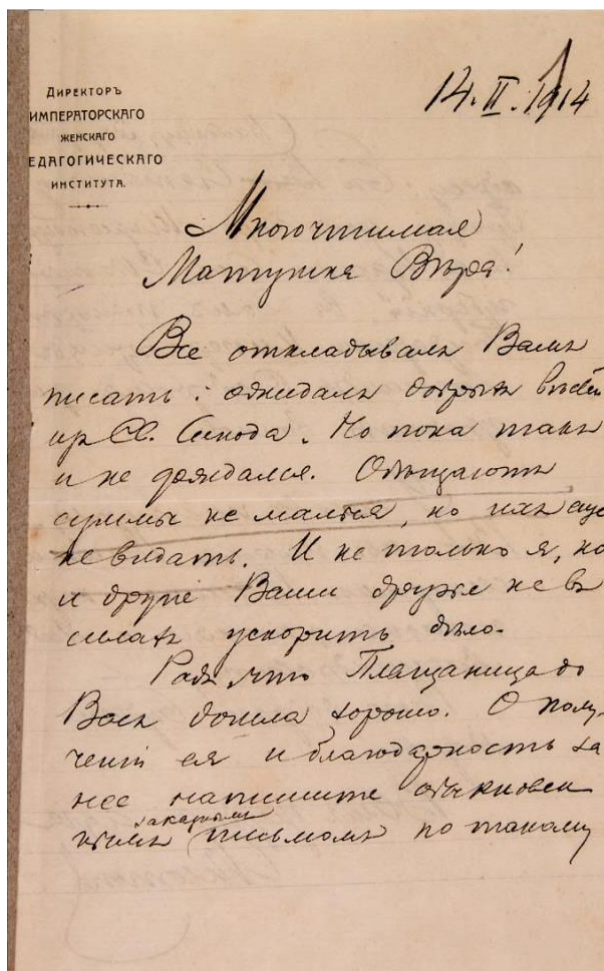 Директоръ
ИМПЕРАТОРСКАГО
ЖЕНСКАГО
ЕДАГОГИЧЕСКАГО
ИНСТИТУТА.
14.II.1914
Многочтимая
Матушка Вѣра!
Все откладывалъ Вамъ
писать: ожидалъ добрыхъ вѣстей
изъ Св. Синода. Но пока такъ
и не дождался. Обѣщаютъ
суммы не малыя, но ихъ еще
не видать. И не только я, но
и другіе Ваши друзья не въ
силахъ ускорить дѣло.
Радъ, что Плащаница до
Васъ дошла хорошо. О полу-
ченіи ея и благодарность за
нее напишите обыкновен
нымъ заказнымъ письмомъ по такому